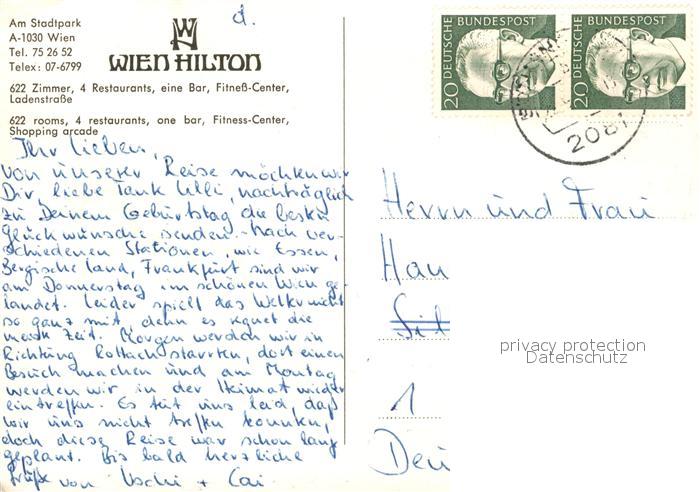 d.
Am Stadtpark
A-1030 Wien
Tel. 75 26 52
Telex: 07-6799
WIEN HILTON
622 Zimmer, 4 Restaurants, eine Bar, Fitneß-Center,
Ladenstraße
622 rooms, 4 restaurants, one bar, Fitness-Center,
Shopping arcade
Ihr lieben,
von unserer Reise möchten wir
Dir, liebe Tante Ulli, nachträglich
zu Deinem Geburtstag die besten
Glückwünsche senden. Nach ver-
schiedenen Stationen, wie Essen,
Bergische Land, Frankfurt sind wir
am Donnerstag im schönen Wien ge-
landet. Leider spielt das Wetter nicht
so ganz mit, denn es regnet die
meiste Zeit. Morgen werden wir in
Richtung Rottach starten, dort einen
Besuch machen und am Montag
werden wir in der Heimat wieder
eintreffen. Es tut uns leid, daß
wir uns nicht treffen konnten,
doch diese Reise war schon lang
geplant. Bis bald herzliche
Grüße von Uschi + Cai
20 DEUTSCHE BUNDESPOST
20 DEUTSCHE BUNDESPOST
2081
Herrn und Frau
Han
Sil
privacy protection
Datenschutz
1
Deu